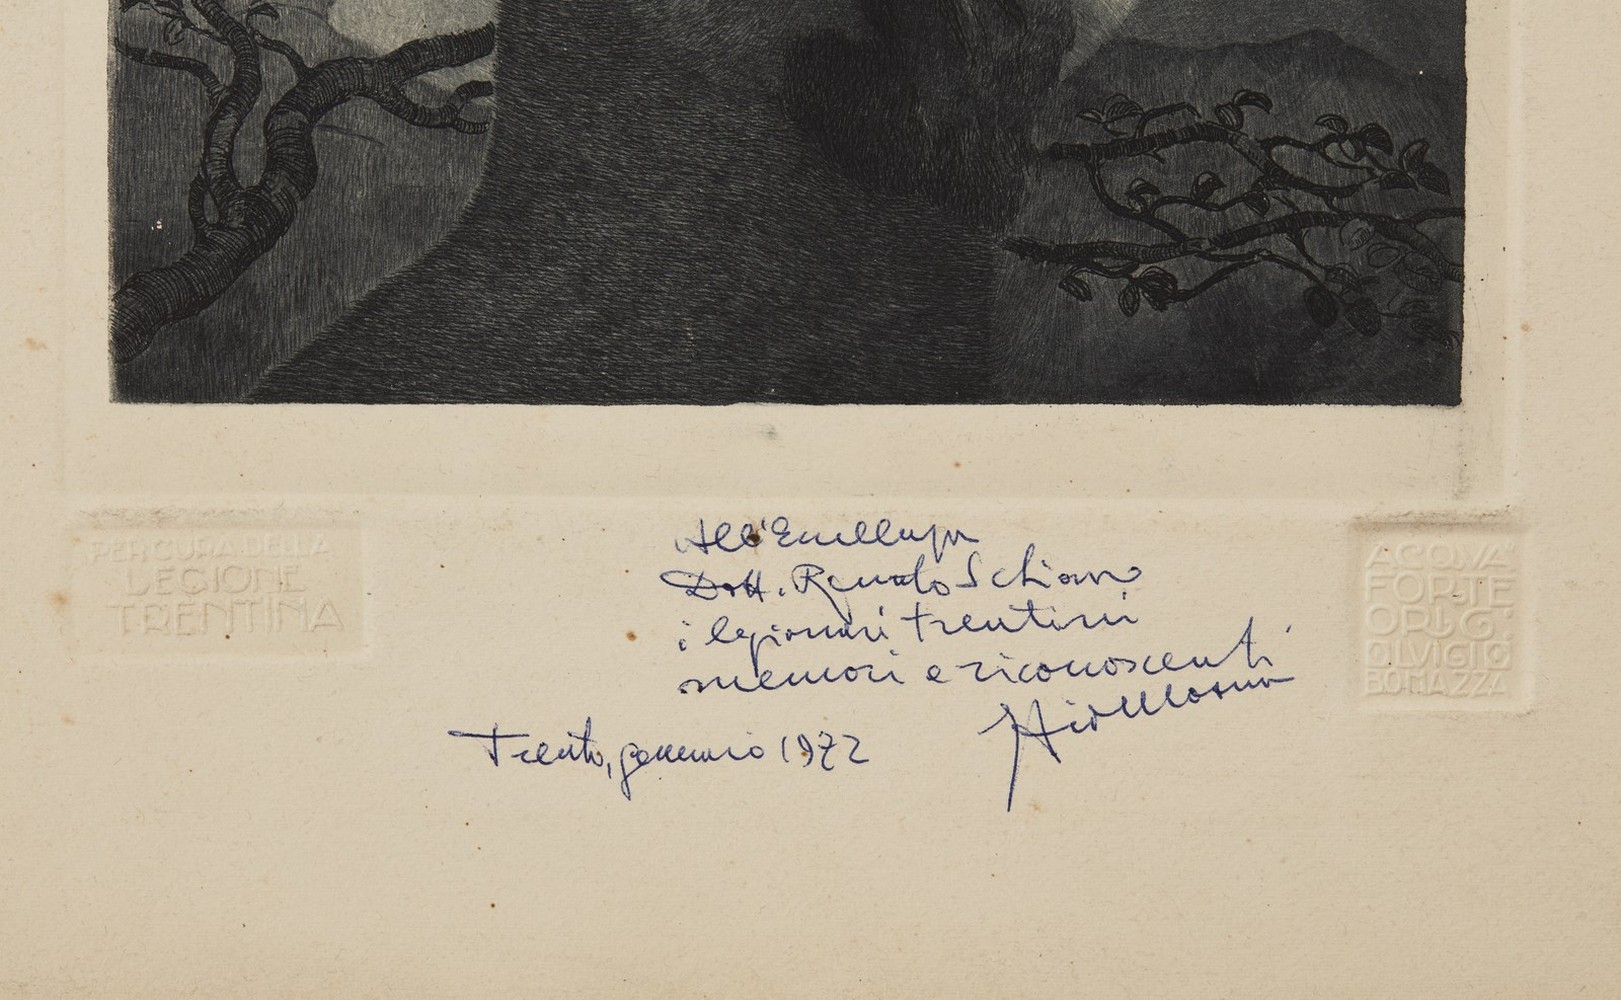 PER CURA DELLA
LEGIONE
TRENTINA
All'Eccellenza
Dott. Renato Schiavo
i legionari trentini
memori e riconoscenti
Trento, gennaio 1972
ACQVA
FORTE
ORIG.
DI LVIGI
BOMAZZA